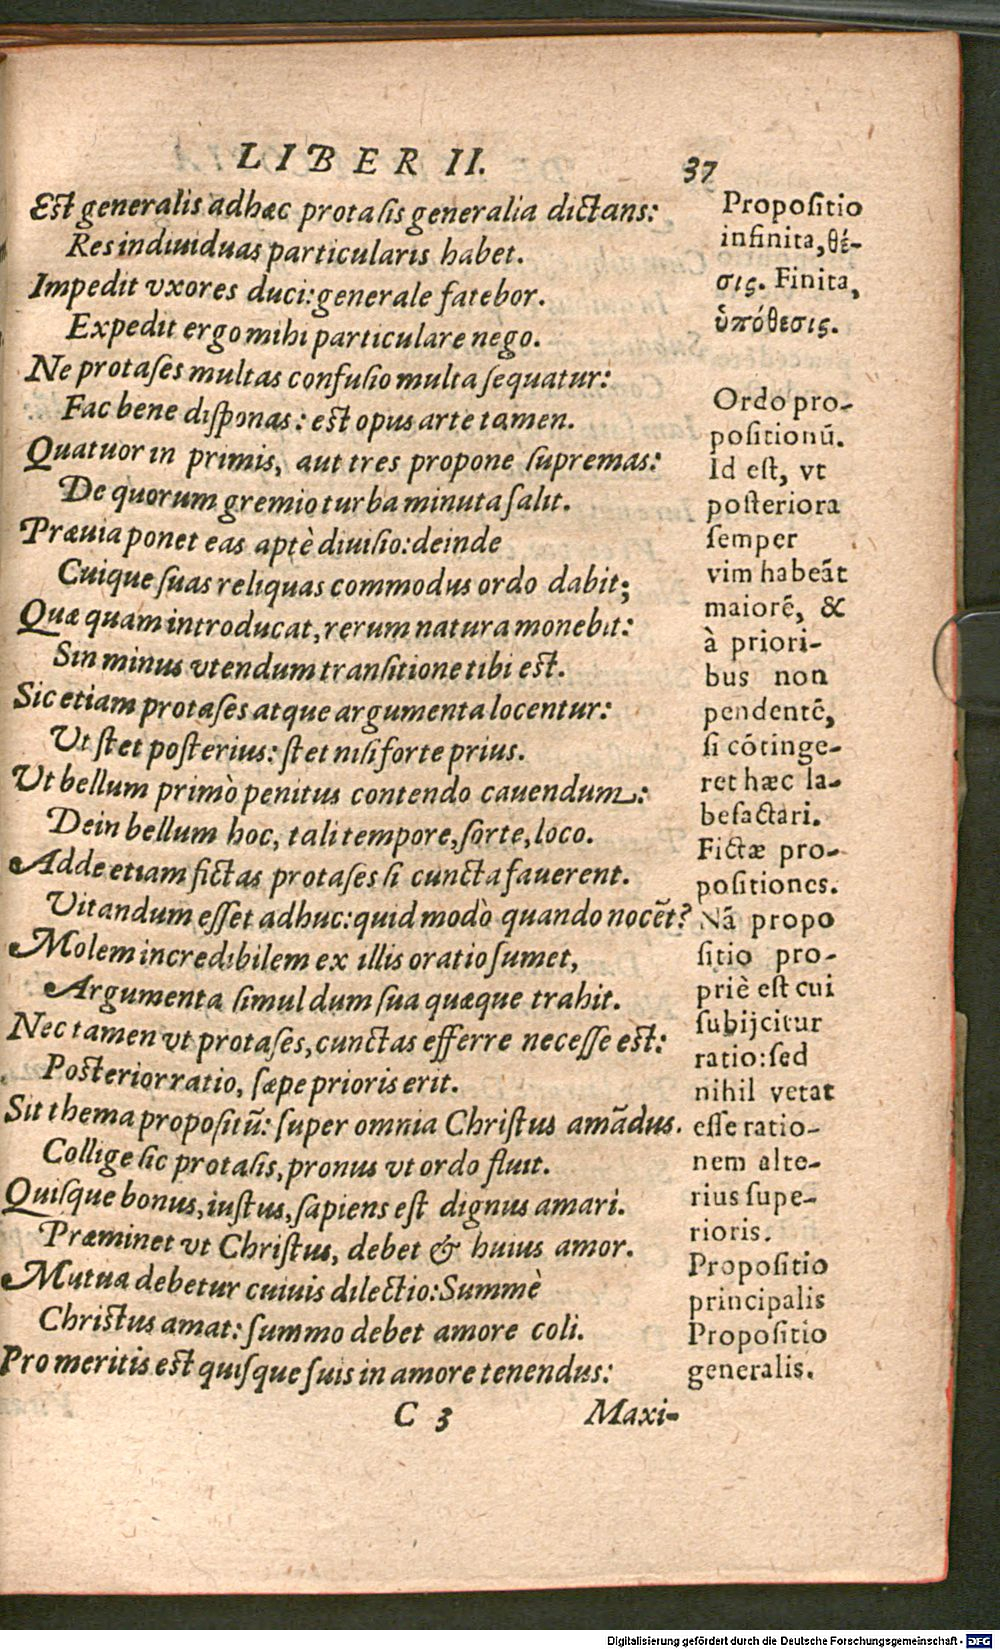 LIBER II. 37
Eſt generalis adhæc protaſis generalia dictans:
Res indiuiduas particularis habet.
Impedit vxores duci: generale fatebor.
Expedit ergo mihi particulare nego.
Ne protaſes multas confuſio multa ſequatur:
Fac bene diſponas: eſt opus arte tamen.
Quatuor in primis, aut tres propone ſupremas:
De quorum gremio turba minuta ſalit.
Præuia ponet eas aptè diuiſio: deinde
Cuique ſuas reliquas commodus ordo dabit;
Quæ quam introducat, rerum natura monebit:
Sin minus vtendum tranſitione tibi eſt.
Sic etiam protaſes atque argumenta locentur:
Ut ſtet poſterius: ſtet niſi forte prius.
Ut bellum primò penitus contendo cauendum:
Dein bellum hoc, tali tempore, ſorte, loco.
Adde etiam fictas protaſes ſi cuncta fauerent.
Vitandum eſſet adhuc: quid modò quando nocẽt?
Molem incredibilem ex illis oratio ſumet,
Argumenta ſimul dum ſua quæque trahit.
Nec tamen vt protaſes, cunctas efferre neceſſe eſt:
Poſterior ratio, ſæpe prioris erit.
Sit thema propoſitũ: ſuper omnia Chriſtus amãdus.
Collige ſic protaſis, pronus vt ordo fluit.
Quiſque bonus, iuſtus, ſapiens eſt dignus amari.
Præminet vt Chriſtus, debet & huius amor.
Mutua debetur cuiuis dilectio: Summè
Chriſtus amat: ſummo debet amore coli.
Pro meritis eſt quiſque ſuis in amore tenendus:
C 3 Maxi-
Propoſitio
infinita, θέ-
σις. Finita,
ὑπόθεσις.
Ordo pro-
poſitionũ.
Id eſt, vt
poſteriora
ſemper
vim habeãt
maiorẽ, &
à priori-
bus non
pendentẽ,
ſi cõtinge-
ret hæc la-
befactari.
Fictæ pro-
poſitiones.
Nã propo
ſitio pro-
priè eſt cui
ſubijcitur
ratio: ſed
nihil vetat
eſſe ratio-
nem alte-
rius ſupe-
rioris.
Propoſitio
principalis
Propoſitio
generalis.
Digitalisierung gefördert durch die Deutsche Forschungsgemeinschaft - DFG